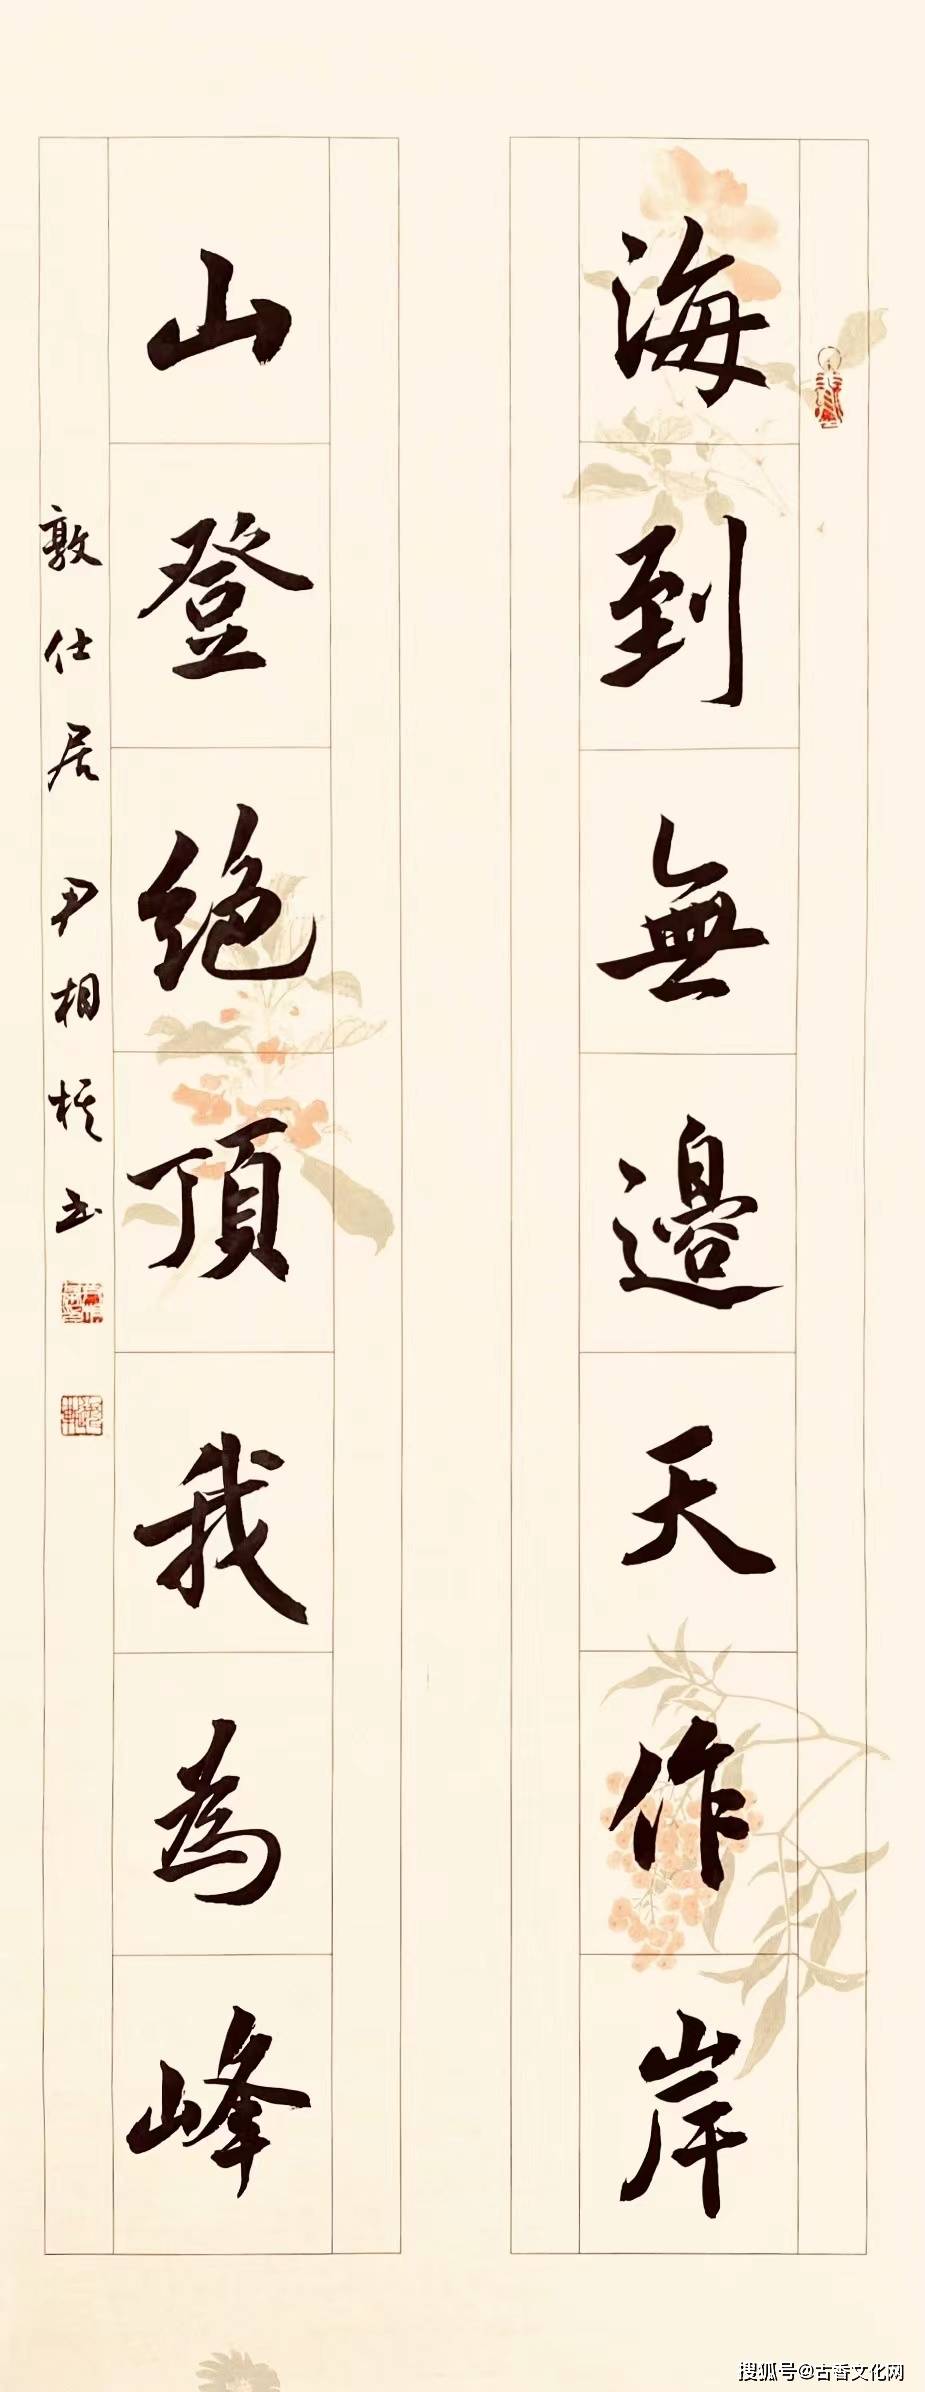 海到無邊天作岸
山登絕頂我為峰
敦仕居尹相栻书
搜狐号@古香文化网